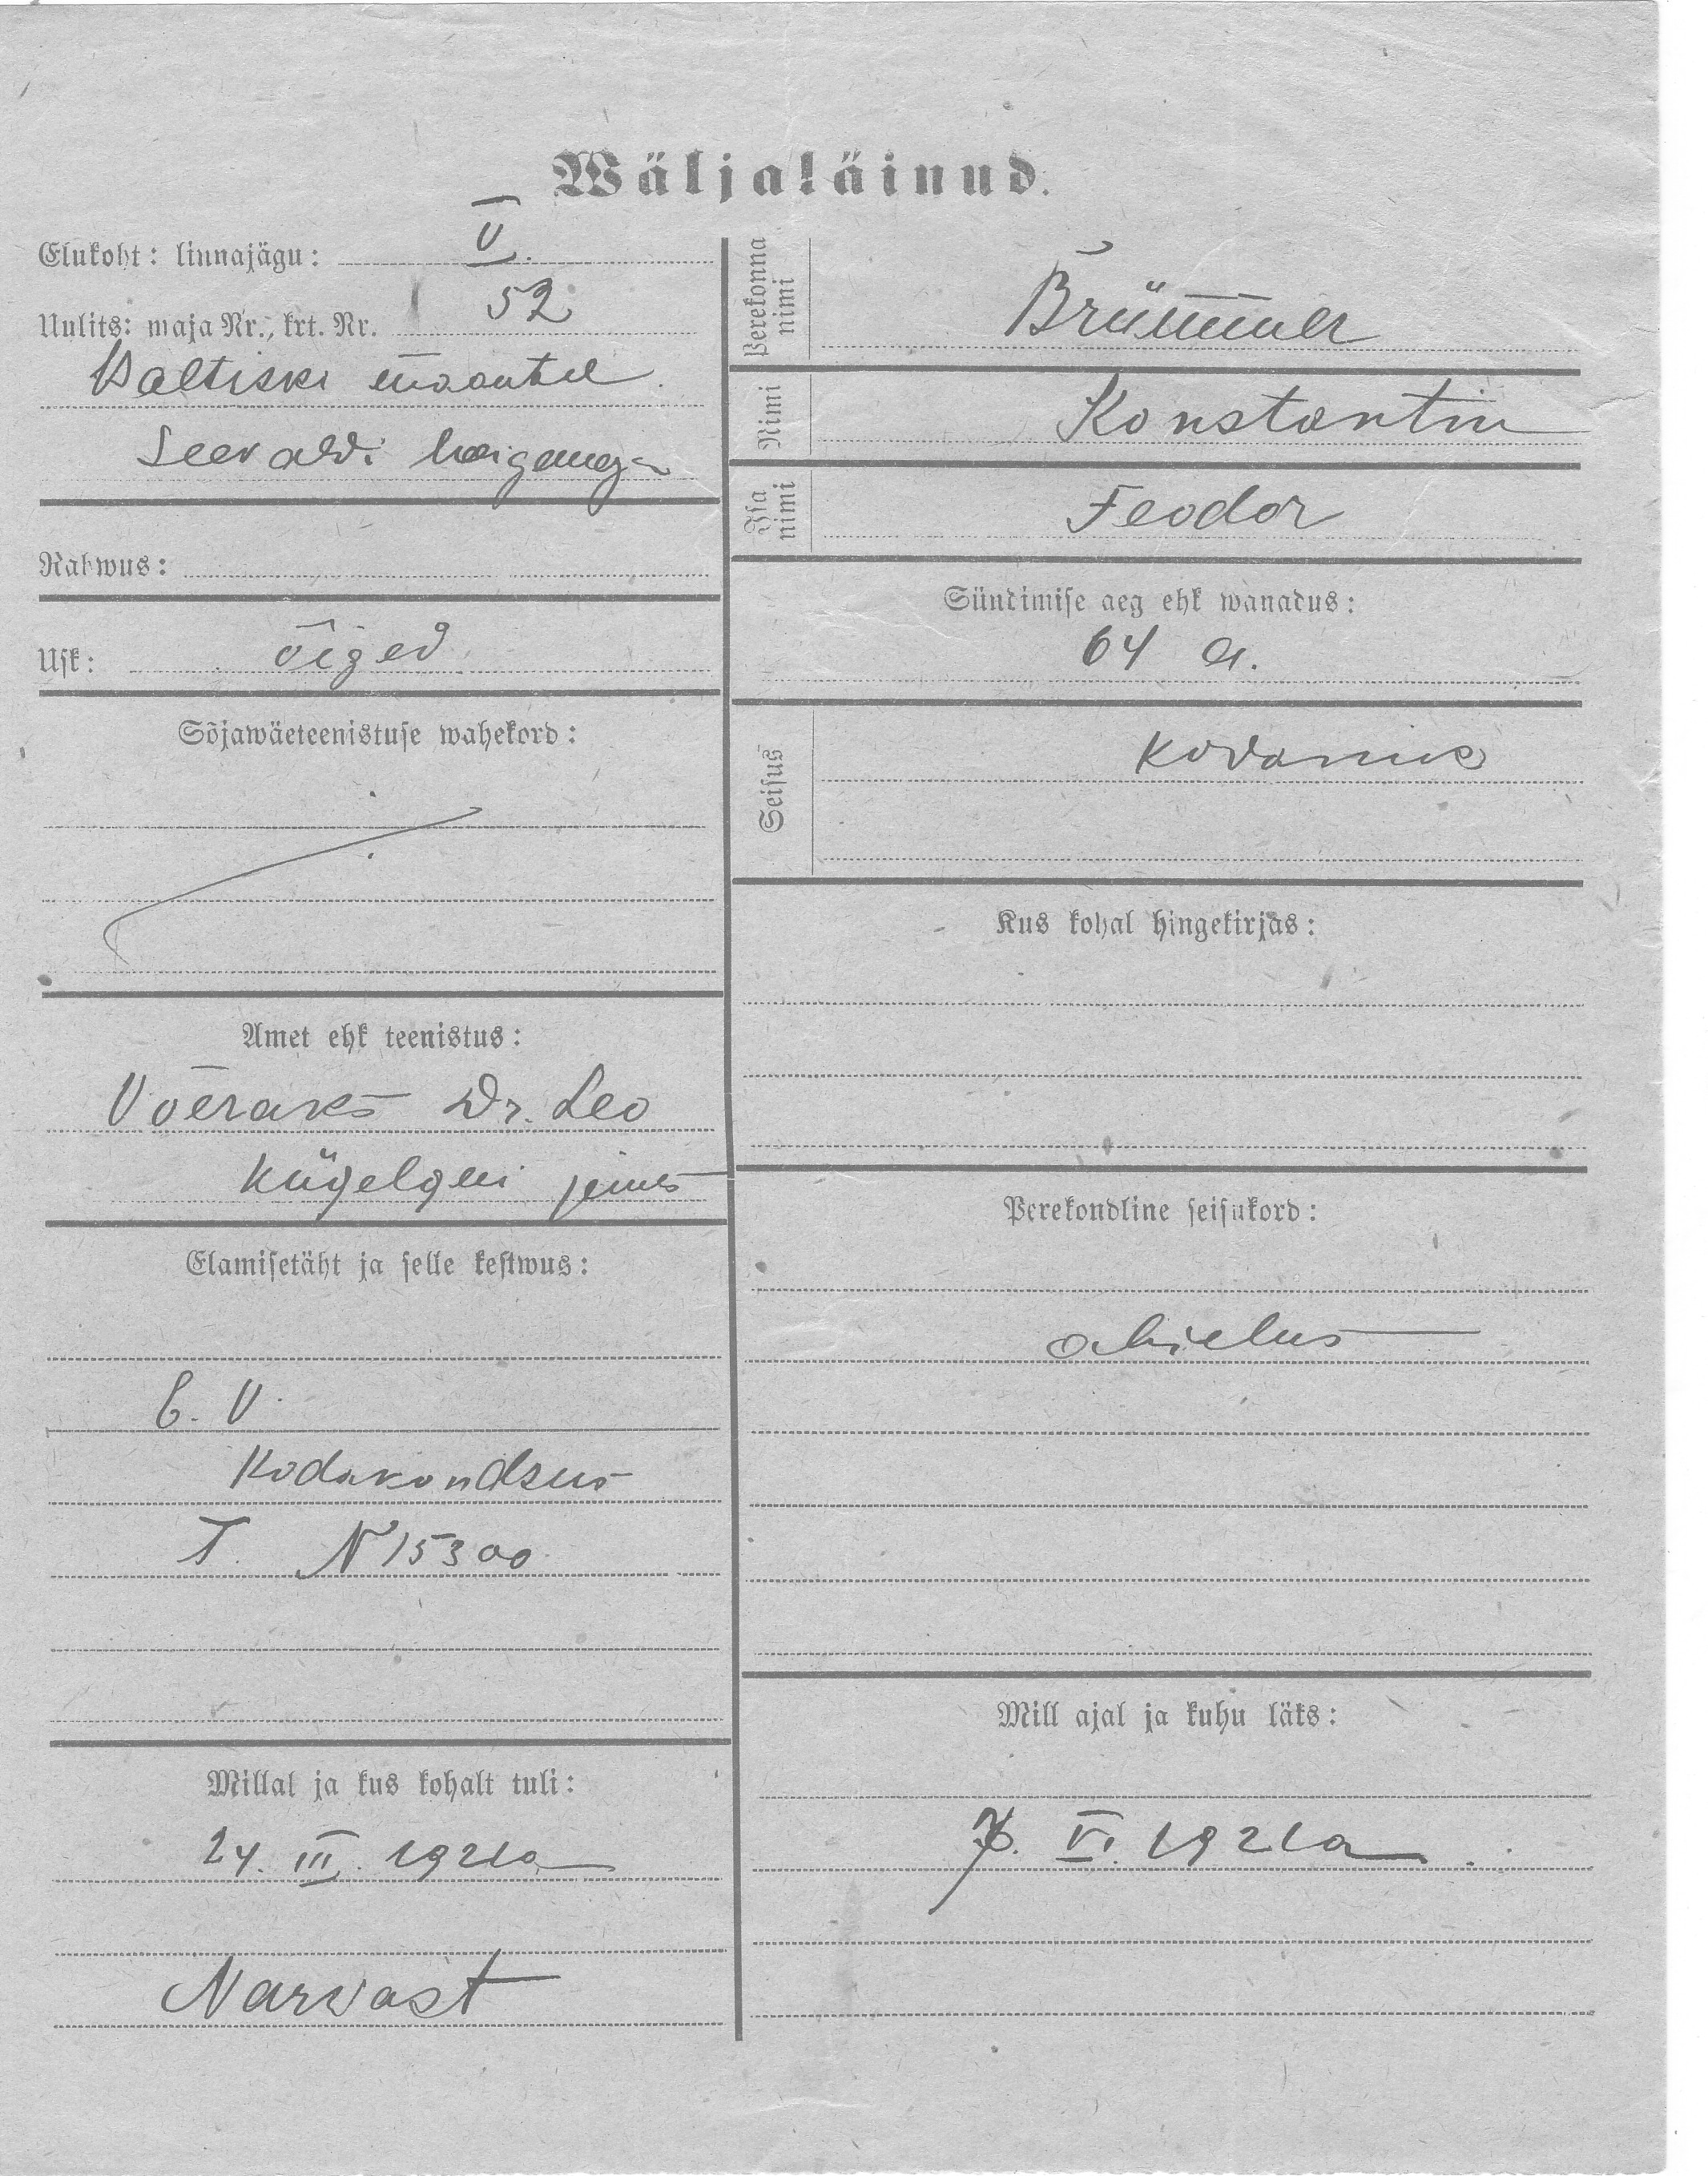 Wäljaläinud.
Elukoht: linnajägu: V.
Uulits: maja Nr., krt. Nr. 52
Baltiski maantee
Seevaldi
Rahwus:
Usk: õiged
Sõjawäeteenistuse wahekord:
Amet ehk teenistus:
Võeraks Dr. Leo
Kügelgeni
Elamisetäht ja selle kestwus:
E. V.
Kodakondsus
T. N 15300
Millal ja kus kohalt tuli:
24. III. 1921a
Narvast
Perekonna nimi
Brümmer
Nimi
Konstantin
Isa nimi
Feodor
Sündimise aeg ehk wanadus:
64 a.
Seisus
kodanik
Kus kohal hingekirjas:
Perekondline seisukord:
abielus
Mill ajal ja kuhu läks:
VI. 1921a